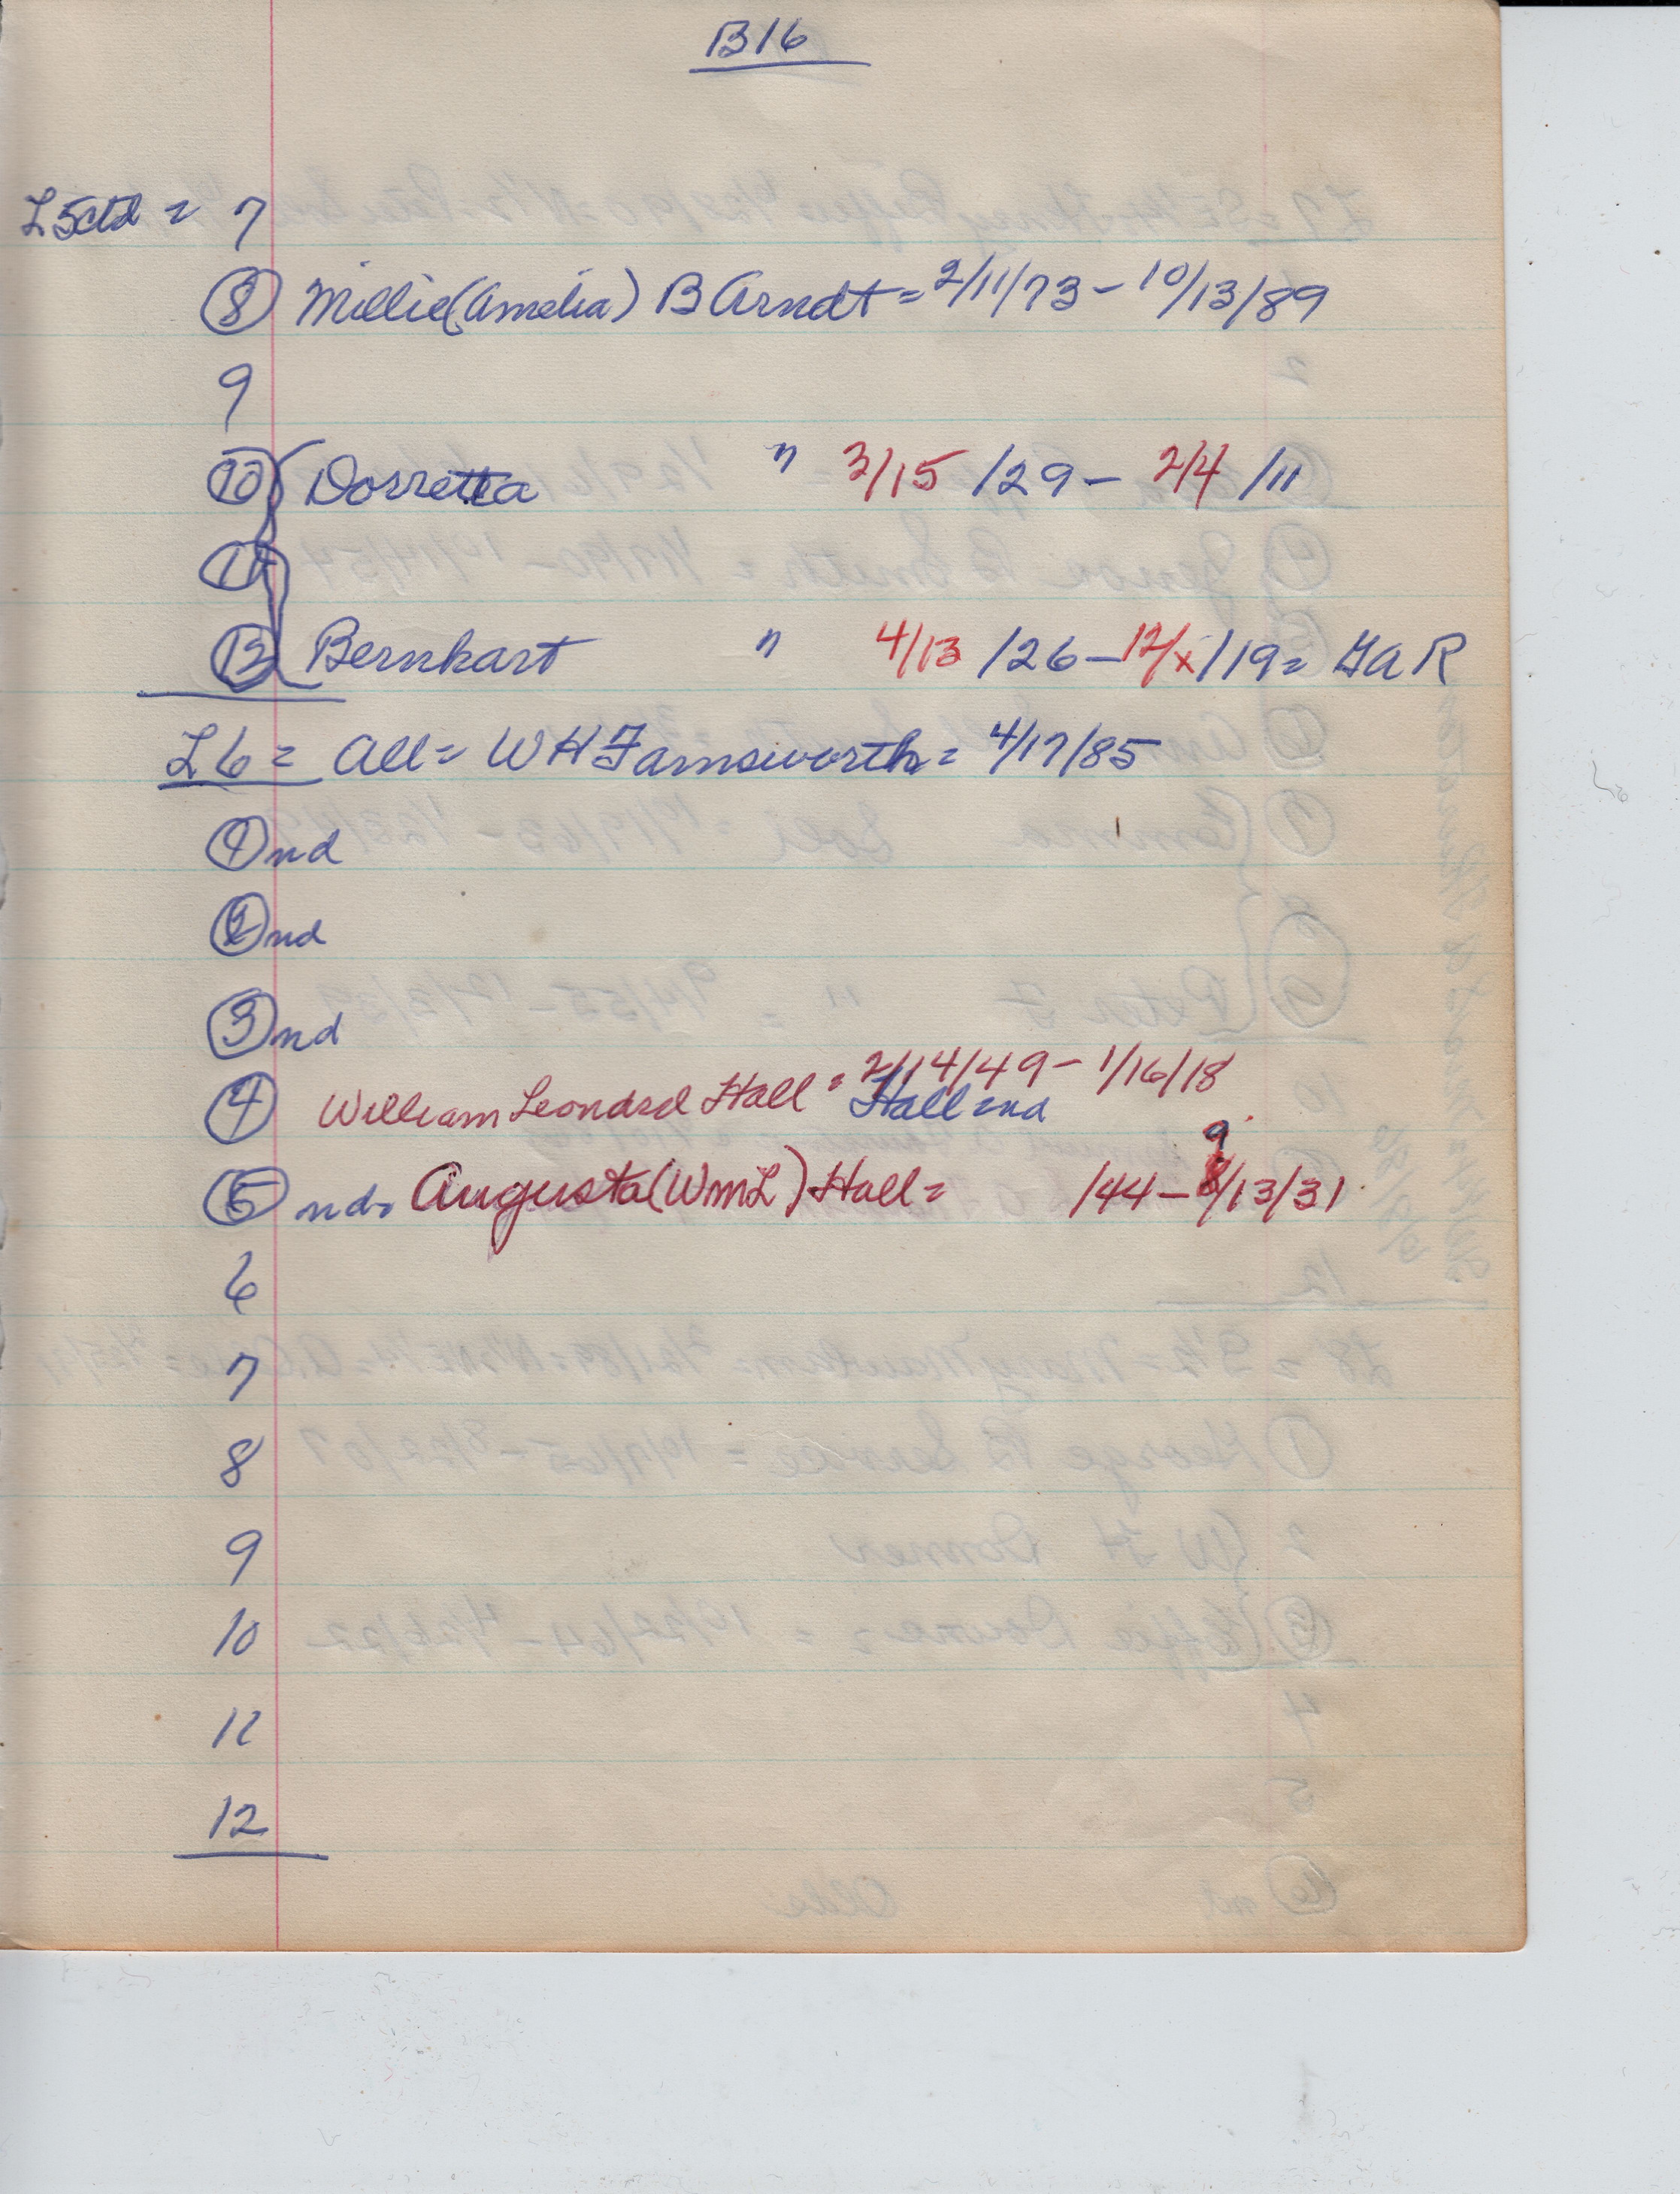 B16
L5ctd = 7
8 Millie(Amelia) B Arndt = 2/11/73 - 10/13/89
9
10 Dorretta " 3/15/29 - 2/4/11
11
12 Bernhart " 4/13/26 - 12/x/19 = GAR
L6 = All = WH Farnsworth = 4/17/85
1 nd
2 nd
3 nd
4 William Leondrd Hall = 2/14/49 - 1/16/18
Hall = nd
5 nd = Augusta (Wm L) Hall = /44 - 9/13/31
6
7
8
9
10
11
12